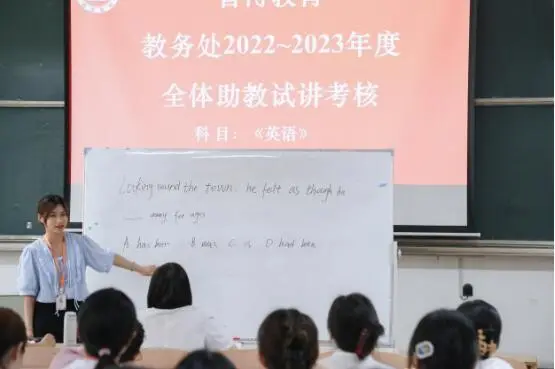 教务处2022~2023年度
全体助教试讲考核
科目:《英语》
Looking around the town, he felt as though he
___ away for ages
A has been B was C is D had been